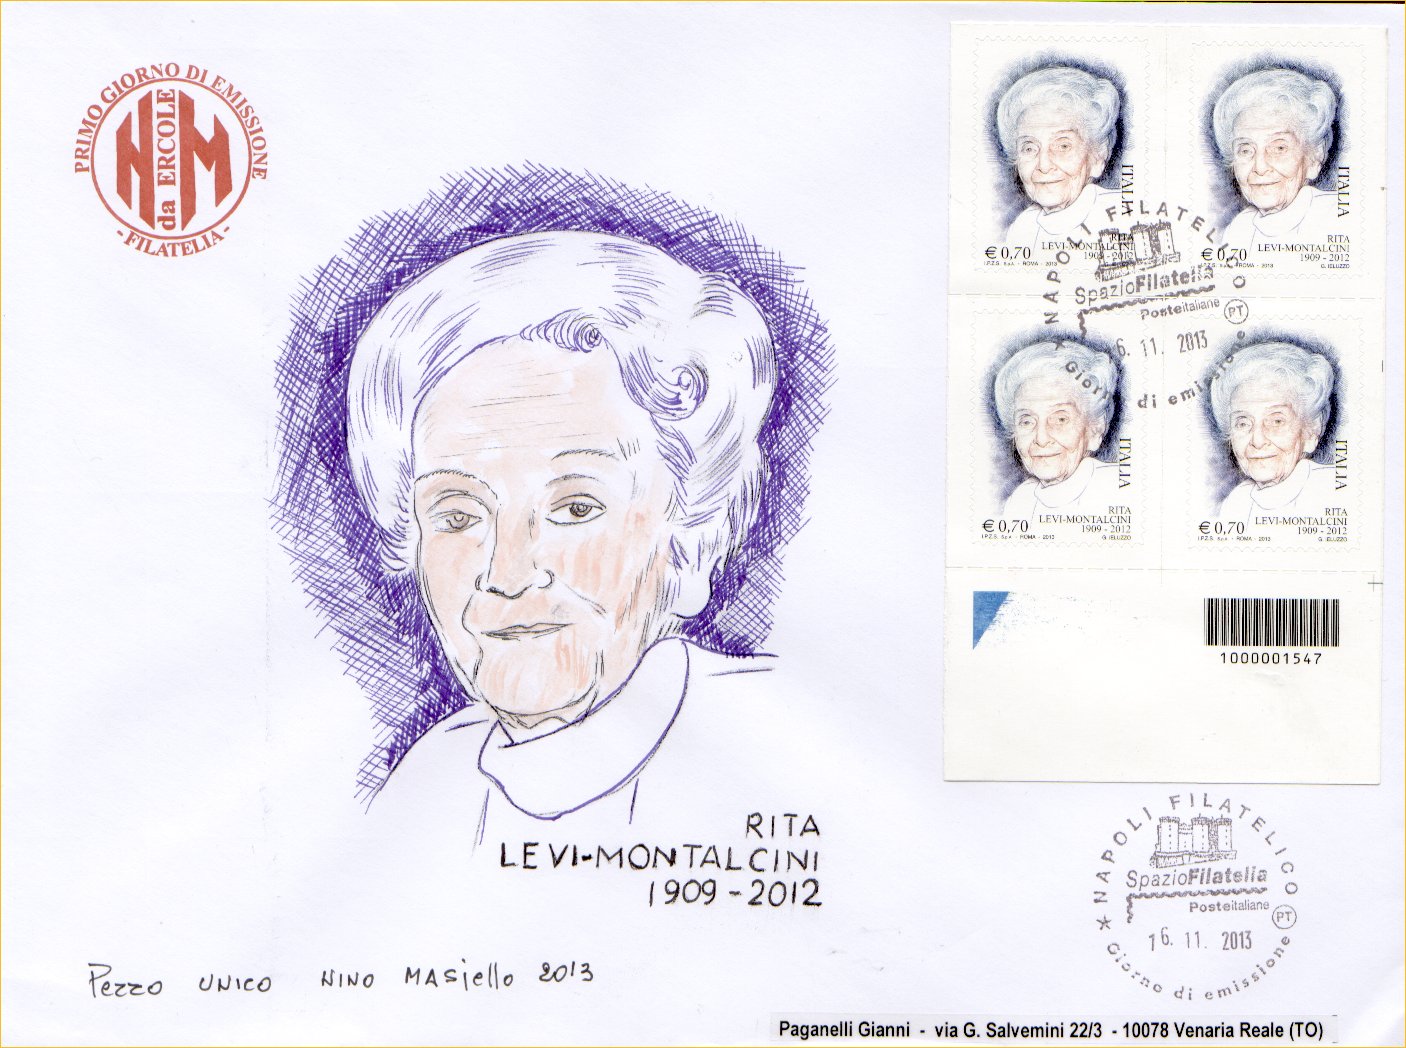 PRIMO GIORNO DI EMISSIONE
NM
da ERCOLE
- FILATELIA -
ITALIA
RITA
LEVI-MONTALCINI
€ 0,70 1909 - 2012
I.P.Z.S. S.p.A. - ROMA - 2013
ITALIA
RITA
LEVI-MONTALCINI
€ 0,70 1909 - 2012
I.P.Z.S. S.p.A. - ROMA - 2013 G. IELUZZO
NAPOLI FILATELICO
SpazioFilatelia
Posteitaliane PT
16. 11. 2013
Giorno di emissione
ITALIA
RITA
LEVI-MONTALCINI
€ 0,70 1909 - 2012
I.P.Z.S. S.p.A. - ROMA - 2013 G. IELUZZO
ITALIA
RITA
LEVI-MONTALCINI
€ 0,70 1909 - 2012
I.P.Z.S. S.p.A. - ROMA - 2013 G. IELUZZO
1000001547
RITA
LEVI-MONTALCINI
1909 - 2012
NAPOLI FILATELICO
SpazioFilatelia
Posteitaliane PT
16. 11. 2013
Giorno di emissione
Pezzo UNICO NINO MASiello 2013
Paganelli Gianni - via G. Salvemini 22/3 - 10078 Venaria Reale (TO)